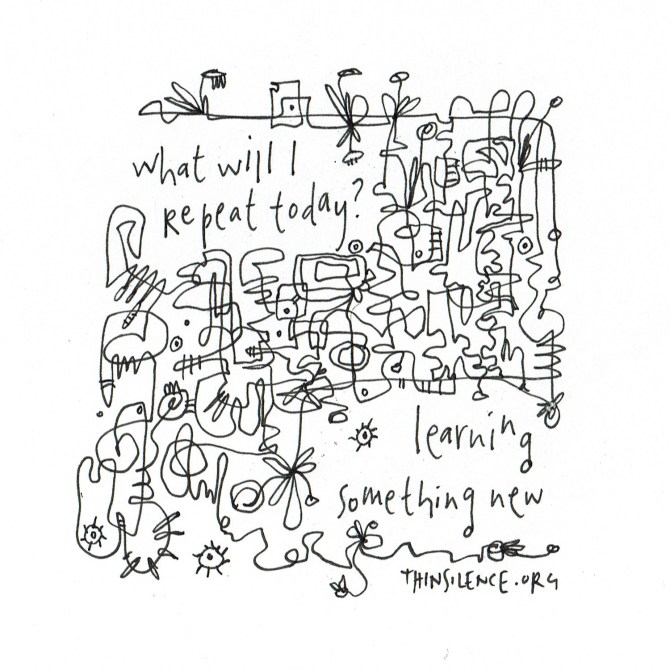 what will I
repeat today?
learning
something new
THINSILENCE.ORG